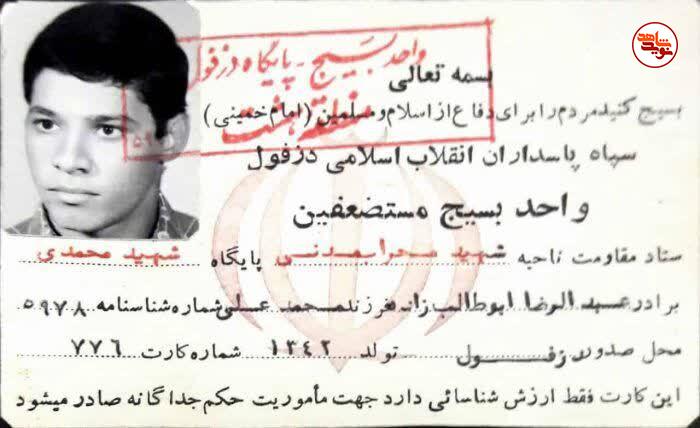 نوید شاهد
واحد بسیج - پایگاه دزفول
منطقه هشت
بسمه تعالی
بسیج کنید مردم را برای دفاع از اسلام و مسلمین (امام خمینی)
سپاه پاسداران انقلاب اسلامی دزفول
واحد بسیج مستضعفین
ستاد مقاومت ناحیه شهید محراب مدنی پایگاه شهید محمدی
برادر عبدالرضا ابوطالب زاده فرزند محمد علی شماره شناسنامه ۵۹۷۸
محل صدور دزفول تولد ۱۳۴۲ شماره کارت ۷۷۶
این کارت فقط ارزش شناسائی دارد جهت مأموریت حکم جداگانه صادر میشود